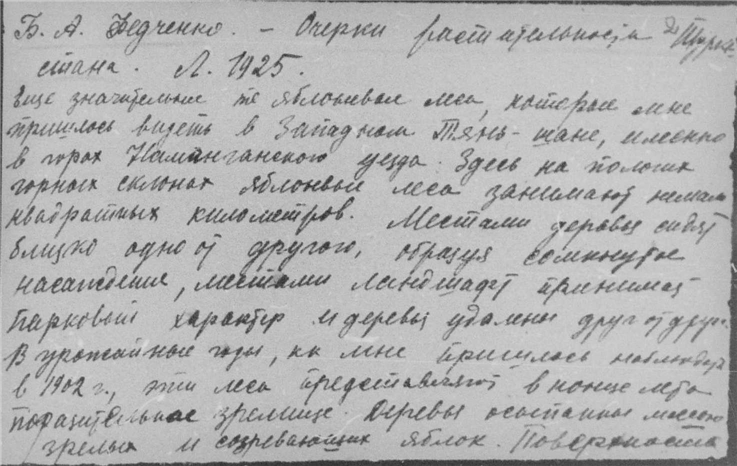 Б. А. Федченко. – Очерки растительности Турке-
стана. Л. 1925.
Еще значительнее те яблоневые леса, которые мне
пришлось видеть в Западном Тянь-шане, именно
в горах Наманганского уезда. Здесь на пологих
горных склонах яблоневые леса занимают немало
квадратных километров. Местами деревья сидят
близко одно от другого, образуя сомкнутое
насаждение, местами ландшафт принимает
парковый характер и деревья удалены друг от друга.
В урожайные годы, как мне пришлось наблюдать
в 1902 г., эти леса представляют в конце лета
поразительное зрелище. Деревья осыпанные массою
зрелых и созревающих яблок. Поверхность